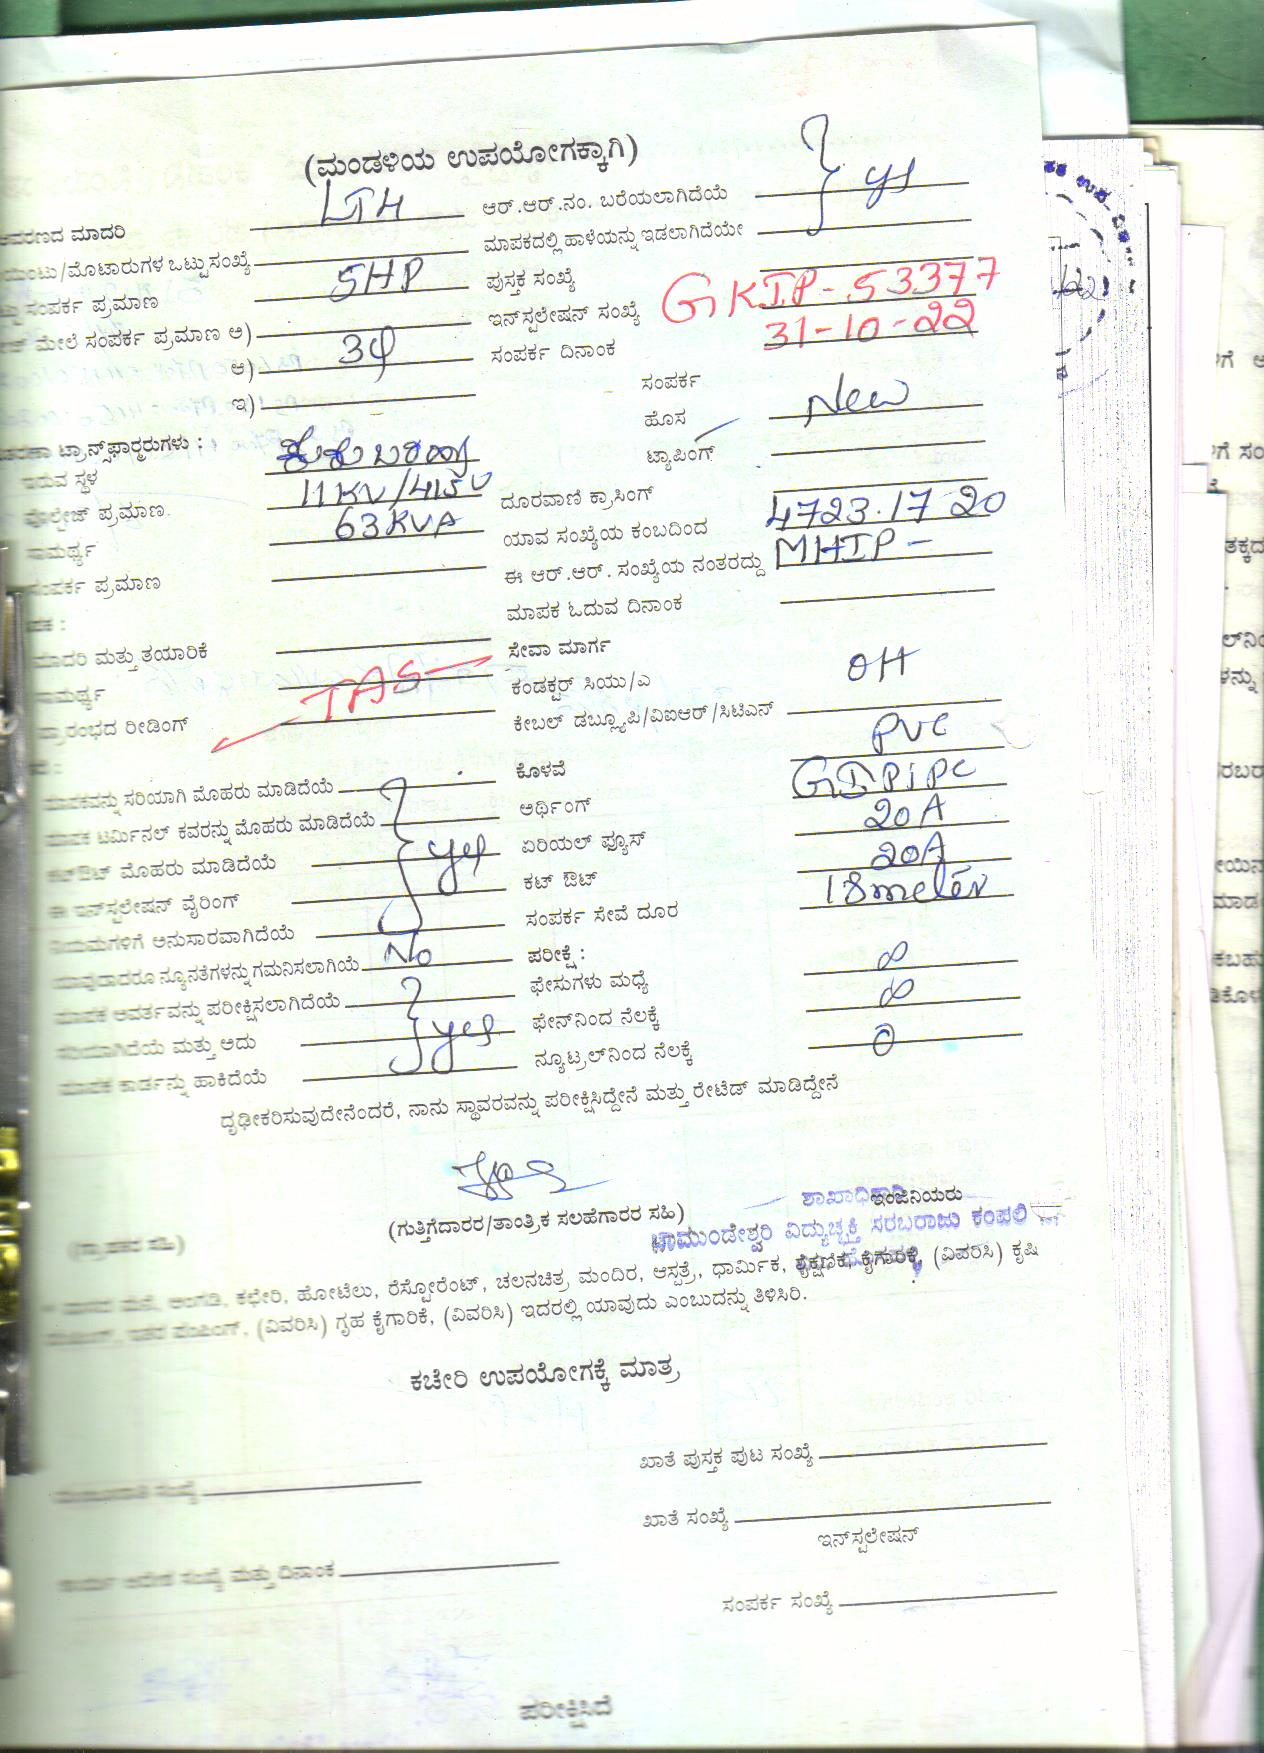 (ಮಂಡಳಿಯ ಉಪಯೋಗಕ್ಕಾಗಿ)
ಆವರಣದ ಮಾದರಿ LT4 ಆರ್.ಆರ್.ನಂ. ಬರೆಯಲಾಗಿದೆಯೆ } yes
/ಮೊಟಾರುಗಳ ಒಟ್ಟು ಸಂಖ್ಯೆ ಮಾಪಕದಲ್ಲಿ ಹಾಳೆಯನ್ನು ಇಡಲಾಗಿದೆಯೇ
ಸಂಪರ್ಕ ಪ್ರಮಾಣ 5HP ಪುಸ್ತಕ ಸಂಖ್ಯೆ
ಮೇಲೆ ಸಂಪರ್ಕ ಪ್ರಮಾಣ ಅ) ಇನ್‌ಸ್ಟಲೇಷನ್ ಸಂಖ್ಯೆ GKIP-53377
ಆ) 3φ ಸಂಪರ್ಕ ದಿನಾಂಕ 31-10-22
ಇ) ಸಂಪರ್ಕ
ಹೊಸ New
ಟ್ರಾನ್ಸ್‌ಫಾರ್ಮರುಗಳು : ಟ್ಯಾಪಿಂಗ್
ಇರುವ ಸ್ಥಳ
ವೋಲ್ಟೇಜ್ ಪ್ರಮಾಣ 11KV/415V ದೂರವಾಣಿ ಕ್ರಾಸಿಂಗ್
ಸಾಮರ್ಥ್ಯ 63KVA ಯಾವ ಸಂಖ್ಯೆಯ ಕಂಬದಿಂದ 4723.17 20
ಸಂಪರ್ಕ ಪ್ರಮಾಣ ಈ ಆರ್.ಆರ್. ಸಂಖ್ಯೆಯ ನಂತರದ್ದು MHIP-
ಮಾಪಕ ಓದುವ ದಿನಾಂಕ
ಮಾದರಿ ಮತ್ತು ತಯಾರಿಕೆ ಸೇವಾ ಮಾರ್ಗ
ಸಾಮರ್ಥ್ಯ TAS ಕಂಡಕ್ಟರ್ ಸಿಯು/ಎ OH
ಪ್ರಾರಂಭದ ರೀಡಿಂಗ್ ಕೇಬಲ್ ಡಬ್ಲ್ಯೂಪಿ/ವಿಐಆರ್/ಸಿಟಿಎಸ್
ಕೊಳವೆ PVC
ಮಾಪಕವನ್ನು ಸರಿಯಾಗಿ ಮೊಹರು ಮಾಡಿದೆಯೆ ಅರ್ಥಿಂಗ್ GI PIPE
ಮಾಪಕ ಟರ್ಮಿನಲ್ ಕವರನ್ನು ಮೊಹರು ಮಾಡಿದೆಯೆ ಏರಿಯಲ್ ಫ್ಯೂಸ್ 20A
ಕಟ್‌ಔಟ್ ಮೊಹರು ಮಾಡಿದೆಯೆ } yes ಕಟ್ ಔಟ್ 20A
ಈ ಇನ್‌ಸ್ಟಲೇಷನ್ ವೈರಿಂಗ್ ಸಂಪರ್ಕ ಸೇವೆ ದೂರ 18meter
ನಿಯಮಗಳಿಗೆ ಅನುಸಾರವಾಗಿದೆಯೆ
ಯಾವುದಾದರೂ ನ್ಯೂನತೆಗಳನ್ನು ಗಮನಿಸಲಾಗಿಯೆ No ಪರೀಕ್ಷೆ :
ಮಾಪಕ ಆವರ್ತವನ್ನು ಪರೀಕ್ಷಿಸಲಾಗಿದೆಯೆ ಫೇಸುಗಳು ಮಧ್ಯೆ ∞
ಸರಿಯಾಗಿದೆಯೆ ಮತ್ತು ಅದು } yes ಫೇಸ್‌ನಿಂದ ನೆಲಕ್ಕೆ ∞
ಮಾಪಕ ಕಾರ್ಡನ್ನು ಹಾಕಿದೆಯೆ ನ್ಯೂಟ್ರಲ್‌ನಿಂದ ನೆಲಕ್ಕೆ 0
ದೃಢೀಕರಿಸುವುದೇನೆಂದರೆ, ನಾನು ಸ್ಥಾವರವನ್ನು ಪರೀಕ್ಷಿಸಿದ್ದೇನೆ ಮತ್ತು ರೇಟೆಡ್ ಮಾಡಿದ್ದೇನೆ
ಶಾಖಾಧಿಕಾರಿ ಇಂಜಿನಿಯರು
(ಗ್ರಾಹಕರ ಸಹಿ) (ಗುತ್ತಿಗೆದಾರರ/ತಾಂತ್ರಿಕ ಸಲಹೆಗಾರರ ಸಹಿ)
ಚಾಮುಂಡೇಶ್ವರಿ ವಿದ್ಯುಚ್ಛಕ್ತಿ ಸರಬರಾಜು ಕಂಪನಿ
ಮನೆ, ಅಂಗಡಿ, ಕಛೇರಿ, ಹೋಟೆಲು, ರೆಸ್ಟೋರೆಂಟ್, ಚಲನಚಿತ್ರ ಮಂದಿರ, ಆಸ್ಪತ್ರೆ, ಧಾರ್ಮಿಕ, ಶೈಕ್ಷಣಿಕ, ಕೈಗಾರಿಕೆ, (ವಿವರಿಸಿ) ಕೃಷಿ
ಪಂಪಿಂಗ್, (ವಿವರಿಸಿ) ಗೃಹ ಕೈಗಾರಿಕೆ, (ವಿವರಿಸಿ) ಇದರಲ್ಲಿ ಯಾವುದು ಎಂಬುದನ್ನು ತಿಳಿಸಿರಿ.
ಕಚೇರಿ ಉಪಯೋಗಕ್ಕೆ ಮಾತ್ರ
ಖಾತೆ ಪುಸ್ತಕ ಪುಟ ಸಂಖ್ಯೆ
ಸಂಖ್ಯೆ
ಖಾತೆ ಸಂಖ್ಯೆ
ಇನ್‌ಸ್ಟಲೇಷನ್
ಕಾರ್ಯ ಆದೇಶ ಸಂಖ್ಯೆ ಮತ್ತು ದಿನಾಂಕ
ಸಂಪರ್ಕ ಸಂಖ್ಯೆ
ಪರೀಕ್ಷಿಸಿದೆ